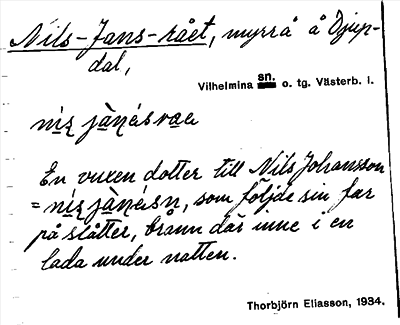 Nils-Jans-rået, myrrå å Djup-
dal,
Vilhelmina sn. o. tg. Västerb. l.
En vuxen dotter till Nils Johansson
=
som följde sin far
på slåtter, brann där inne i en
lada under natten.
Thorbjörn Eliasson, 1934.